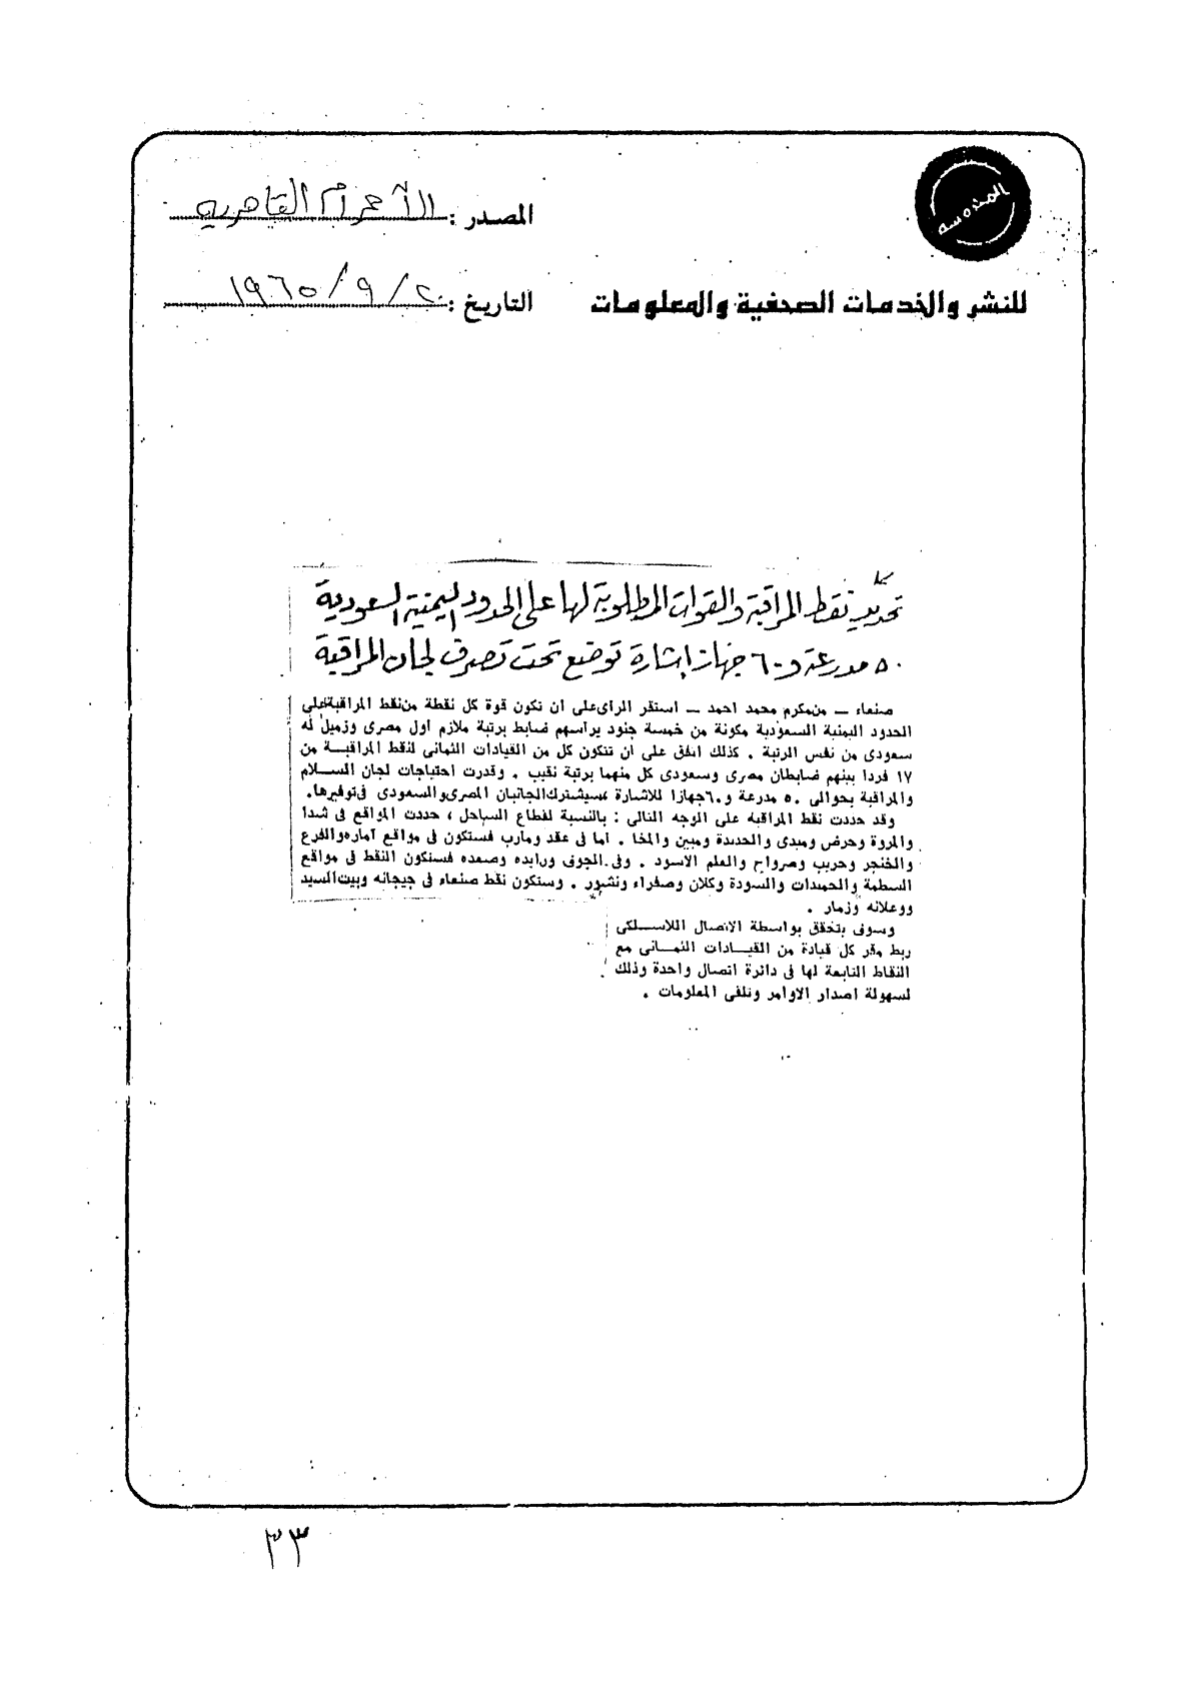 المصدر : الأهرام القاهرية
للنشر والخدمات الصحفية والمعلومات
التاريخ : ٢٠/ ٩/ ١٩٦٥
تحديد نقط المراقبة والقوات المطلوبة لها على الحدود اليمنية السعودية
٥٠ مدرعة و ٦٠ جهاز إشارة توضع تحت تصرف لجان المراقبة
صنعاء – من مكرم محمد احمد – استقر الرأى على ان تكون قوة كل نقطة من نقط المراقبة على
الحدود اليمنية السعودية مكونة من خمسة جنود يرأسهم ضابط برتبة ملازم اول مصرى وزميل له
سعودى من نفس الرتبة . كذلك اتفق على ان تتكون كل من القيادات الثمانى لنقط المراقبة من
١٧ فردا بينهم ضابطان مصرى وسعودى كل منهما برتبة نقيب . وقدرت احتياجات لجان السلام
والمراقبة بحوالى ٥٠ مدرعة و٦٠ جهازا للاشارة سيشترك الجانبان المصرى والسعودى فى توفيرها.
وقد حددت نقط المراقبة على الوجه التالى : بالنسبة لقطاع الساحل ، حددت المواقع فى شدا
والمروة وحرض وميدى والحديدة ومبين والمخا . اما فى عقد ومارب فستكون فى مواقع اماره والفرع
والخنجر وحريب وصرواح والعلم الاسود . وفى الجوف ورايده وصعده فستكون النقط فى مواقع
السطمة والحميدات والسودة وكلان وصفراء ونشور . وستكون نقط صنعاء فى جيحانه وبيت السيد
ووعلانه وزمار .
وسوف يتحقق بواسطة الاتصال اللاسلكى
ربط مقر كل قيادة من القيادات الثمانى مع
النقاط التابعة لها فى دائرة اتصال واحدة وذلك
لسهولة اصدار الاوامر وتلقى المعلومات .
٣٣